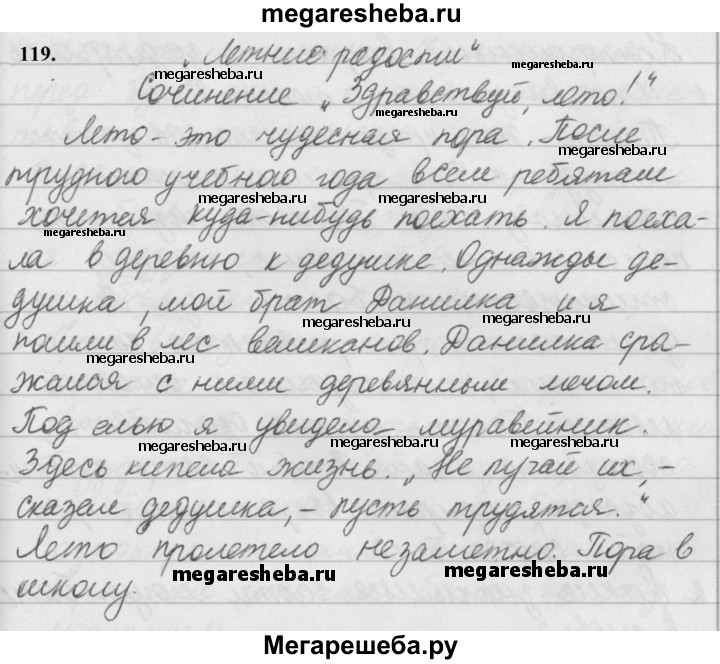 megaresheba.ru
119.
„Летние радости“
megaresheba.ru
Сочинение „Здравствуй, лето!“
megaresheba.ru
Лето - это чудесная пора. После
megaresheba.ru
трудного учебного года всем ребятам
megaresheba.ru
хочется куда-нибудь поехать. Я поеха-
megaresheba.ru
ла в деревню к дедушке. Однажды де-
megaresheba.ru
душка, мой брат Данилка и я
megaresheba.ru megaresheba.ru
пошли в лес великанов. Данилка сра-
megaresheba.ru
жался с ними деревянным мечом.
Под елью я увидела муравейник.
megaresheba.ru megaresheba.ru
Здесь кипела жизнь. „Не пугай их, -
megaresheba.ru
сказал дедушка, - пусть трудятся.“
Лето пролетело незаметно. Пора в
megaresheba.ru megaresheba.ru
школу.
Мегарешеба.ру